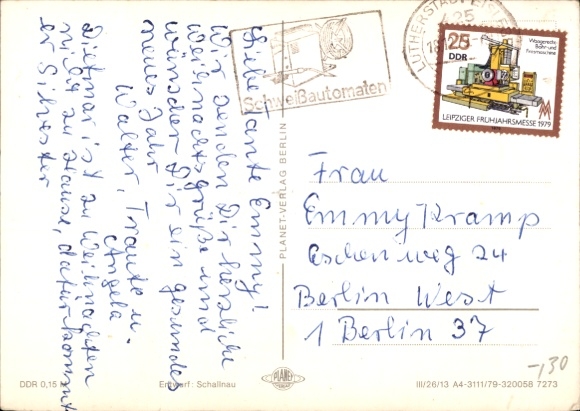 Liebe Tante Emmy!
Wir senden Dir herzliche
Weihnachtsgrüße und
wünschen Dir ein gesundes
neues Jahr
Walter, Traute u.
Angela
Dietmar ist zu Weihnachten
nicht zu Hause, dafür kommt
er Silvester
Schweißautomaten
LUTHERSTADT
25
DDR
Waagerecht-
Bohr- und
Fräsmaschine
LEIPZIGER FRÜHJAHRSMESSE 1979
PLANET-VERLAG BERLIN
Frau
Emmy Kramp
Eschenweg 24
Berlin West
1 Berlin 37
-,30
DDR 0,15 M
Entwurf: Schallnau
PLANET
III/26/13 A4-3111/79-320058 7273